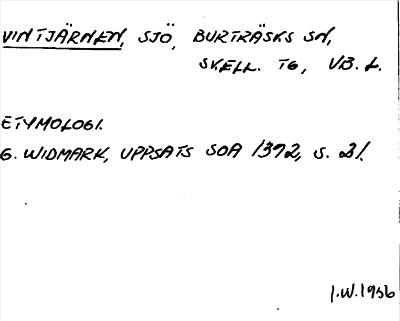 VINTJÄRNEN, SJÖ, BURTRÄSKS SN,
SKELL. TG, VB. L.
ETYMOLOGI.
G. WIDMARK, UPPSATS SOA 1392, S. 21.
I.W. 1956